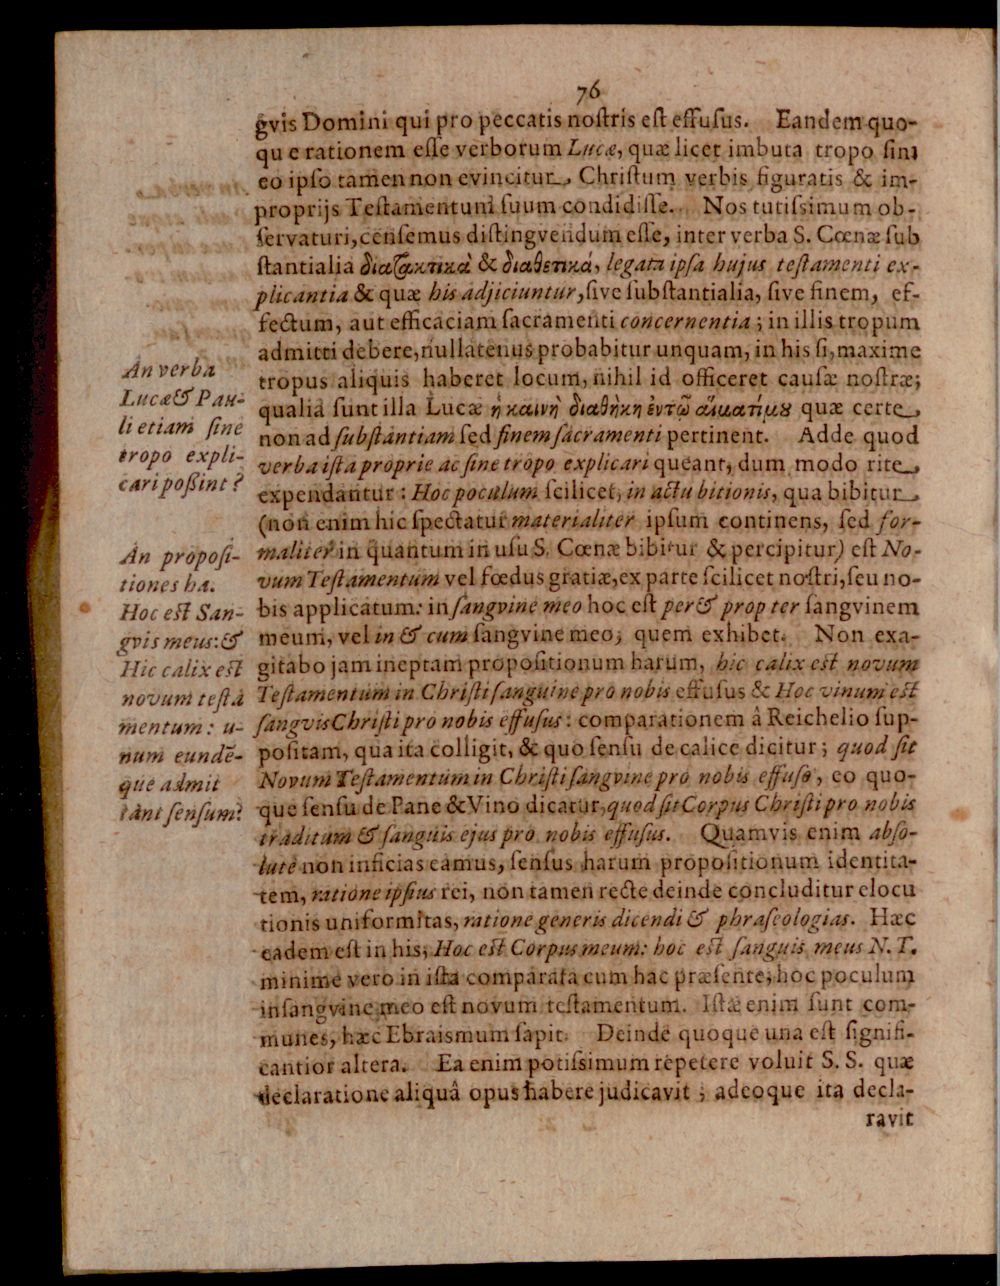 76
gvis Domini qui pro peccatis noſtris eſt effuſus. Eandem quo-
qu e rationem eſſe verborum Lucæ, quæ licet imbuta tropo ſint
eo ipſo tamen non evincitur, Chriſtum verbis figuratis & im-
proprijs Teſtamentum ſuum condidiſſe. Nos tutiſsimum ob-
ſervaturi, cenſemus diſtingvendum eſſe, inter verba S. Cœnæ ſub
ſtantialia διατακτικὰ & διαθετικά, legata ipſa hujus teſtamenti ex-
plicantia & quæ his adjiciuntur, ſive ſubſtantialia, ſive finem, ef-
fectum, aut efficaciam ſacramenti concernentia; in illis tropum
admitti debere, nullatenus probabitur unquam, in his ſi, maxime
tropus aliquis haberet locum, nihil id officeret cauſæ noſtræ;
qualia ſunt illa Lucæ ἡ καινὴ διαθήκη ἐν τῷ αἵματί μου quæ certe,
non ad ſubſtantiam ſed finem ſacramenti pertinent. Adde quod
verba iſta proprie ac ſine tropo explicari queant, dum modo rite,
expendantur: Hoc poculum ſcilicet, in actu bitionis, qua bibitur,
(non enim hic ſpectatur materialiter ipſum continens, ſed for-
maliter in quantum in uſu S. Cœnæ bibitur & percipitur) eſt No-
vum Teſtamentum vel fœdus gratiæ, ex parte ſcilicet noſtri, ſeu no-
bis applicatum: in ſangvine meo hoc eſt per & prop ter ſangvinem
meum, vel in & cum ſangvine meo, quem exhibet. Non exa-
gitabo jam ineptam propoſitionum harum, hic calix eſt novum
Teſtamentum in Chriſti ſanguine pro nobis effuſus & Hoc vinum eſt
ſangvis Chriſti pro nobis effuſus: comparationem â Reichelio ſup-
poſitam, qua ita colligit, & quo ſenſu de calice dicitur; quod ſit
Novum Teſtamentum in Chriſti ſangvine pro nobis effuſo, eo quo-
que ſenſu de Pane & Vino dicatur, quod ſit Corpus Chriſti pro nobis
traditum & ſanguis ejus pro nobis effuſus. Quamvis enim abſo-
lutè non inficias eamus, ſenſus harum propoſitionum identita-
tem, ratione ipſius rei, non tamen recte deinde concluditur elocu
tionis uniformitas, ratione generis dicendi & phraſeologias. Hæc
eadem eſt in his; Hoc eſt Corpus meum: hoc eſt ſanguis meus N. T.
minime vero in iſta comparata cum hac præſente; hoc poculum
in ſangvine meo eſt novum teſtamentum. Iſtæ enim ſunt com-
munes, hæc Ebraismum ſapit. Deinde quoque una eſt ſignifi-
cantior altera. Ea enim potiſsimum repetere voluit S. S. quæ
declaratione aliquâ opus habere judicavit; adeoque ita decla-
ravit
An verba
Lucæ & Pau-
li etiam ſine
tropo expli-
cari poßint?
An propoſi-
tiones hæ.
Hoc eſt San-
gvis meus: &
Hic calix eſt
novum teſta
mentum: u-
num eundē-
que admit
tant ſenſum?